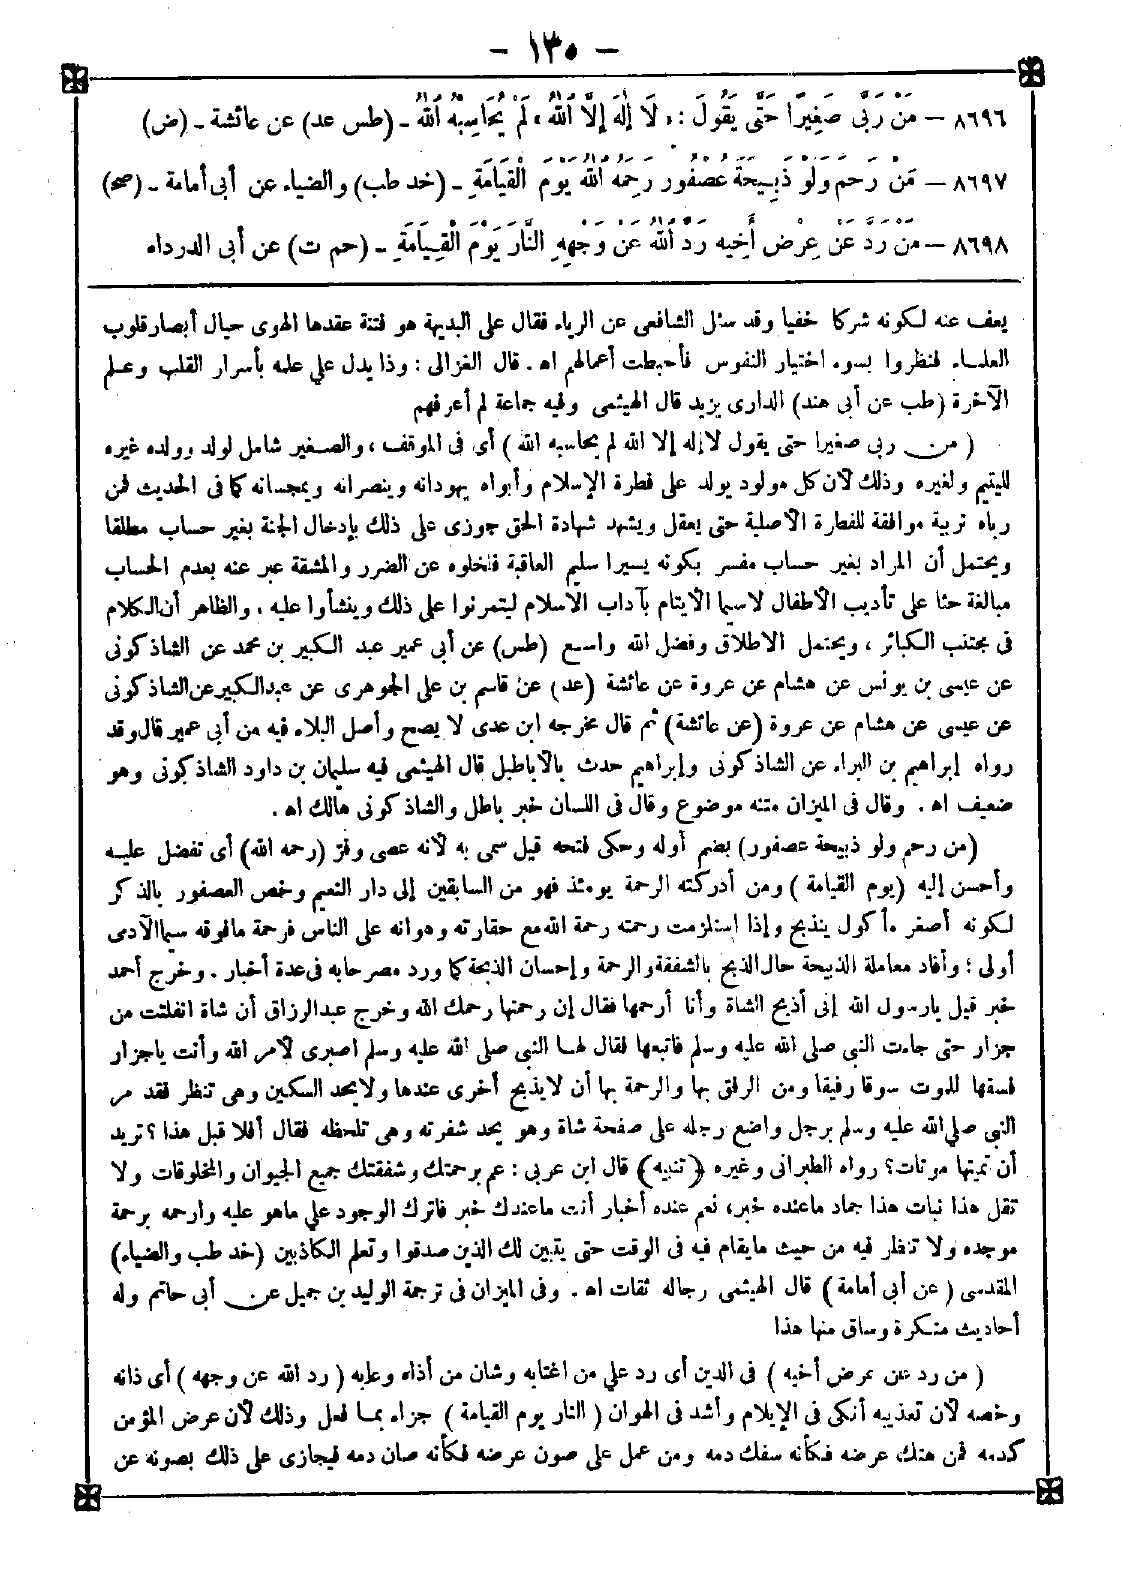 - ١٣٥ -
٨٦٩٦ - مَنْ رَبَّى صَغِيرًا حَتَّى يَقُولَ : «لَا إِلٰهَ إِلَّا اللّٰهُ» لَمْ يُحَاسِبْهُ اللّٰهُ - (طس عد) عن عائشة - (ض)
٨٦٩٧ - مَنْ رَحِمَ وَلَوْ ذَبِيحَةَ عُصْفُورٍ رَحِمَهُ اللّٰهُ يَوْمَ الْقِيَامَةِ - (خد طب) والضياء عن أبى أمامة - (صح)
٨٦٩٨ - مَنْ رَدَّ عَنْ عِرْضِ أَخِيهِ رَدَّ اللّٰهُ عَنْ وَجْهِهِ النَّارَ يَوْمَ الْقِيَامَةِ - (حم ت) عن أبى الدرداء
يعف عنه لكونه شركا خفيا وقد سئل الشافعى عن الرياء فقال على البديهة هو فتنة عقدها الهوى حيال أبصار قلوب
العلماء فنظروا بسوء اختيار النفوس فأحبطت أعمالهم اه . قال الغزالى : وذا يدل على علمه بأسرار القلب وعلم
الآخرة (طب عن أبى هند) الدارى يزيد قال الهيثمى وفيه جماعة لم أعرفهم
( من ربى صغيرا حتى يقول لا إله إلا الله لم يحاسبه الله ) أى فى الموقف ، والصغير شامل لولد وولده غيره
لليتيم ولغيره وذلك لأن كل مولود يولد على فطرة الإسلام وأبواه يهودانه وينصرانه ويمجسانه كما فى الحديث فمن
رباه تربية موافقة للفطرة الأصلية حتى يعقل ويشهد شهادة الحق جوزى على ذلك بإدخال الجنة بغير حساب مطلقا
ويحتمل أن المراد بغير حساب مفسر بكونه يسيرا سليم العاقبة فلخلوه عن الضرر والمشقة عبر عنه بعدم الحساب
مبالغة حثا على تأديب الأطفال لاسيما الأيتام بآداب الاسلام ليتمرنوا على ذلك وينشأوا عليه ، والظاهر أن الكلام
فى مجتنب الكبائر ، ويحتمل الاطلاق وفضل الله واسع (طس) عن أبى عمير عبد الكبير بن محمد عن الشاذكونى
عن عيسى بن يونس عن هشام عن عروة عن عائشة (عد) عن قاسم بن على الجوهرى عن عبدالكبير عن الشاذكونى
عن عيسى عن هشام عن عروة (عن عائشة) ثم قال مخرجه ابن عدى لا يصح وأصل البلاء فيه من أبى عمير قال وقد
رواه إبراهيم بن البراء عن الشاذكونى وإبراهيم حدث بالأباطيل قال الهيثمى فيه سليمان بن داود الشاذكونى وهو
ضعيف اه . وقال فى الميزان متنه موضوع وقال فى اللسان خبر باطل والشاذكونى هالك اه .
(من رحم ولو ذبيحة عصفور) بضم أوله وحكى فتحه قيل سمى به لأنه عصى وفر (رحمه الله) أى تفضل عليه
وأحسن إليه (يوم القيامة ) ومن أدركته الرحمة يومئذ فهو من السابقين إلى دار النعيم وخص العصفور بالذكر
لكونه أصغر مأكول ينذبح وإذا استلزمت رحمته رحمة الله مع حقارته وهوانه على الناس فرحمة مافوقه سيما الآدى
أولى ؛ وأفاد معاملة الذبيحة حال الذبح بالشفقة والرحمة وإحسان الذبحة كما ورد مصرحا به فى عدة أخبار . وخرج أحمد
خبر قيل يارسول الله إنى أذبح الشاة وأنا أرحمها فقال إن رحمتها رحمك الله وخرج عبدالرزاق أن شاة انفلتت من
جزار حتى جاءت النبى صلى الله عليه وسلم فاتبعها فقال لها النبى صلى الله عليه وسلم اصبرى لأمر الله وأنت ياجزار
فسقها للموت سوقا رفيقا ومن الرفق بها والرحمة بها أن لايذبح أخرى عندها ولايحد السكين وهى تنظر فقد مر
النبى صلى الله عليه وسلم برجل واضع رجله على صفحة شاة وهو يحد شفرته وهى تلحظه فقال أفلا قبل هذا ؟ تريد
أن تميتها موتات؟ رواه الطبرانى وغيره (تنبيه) قال ابن عربى : عم برحمتك وشفقتك جميع الحيوان والمخلوقات ولا
تقل هذا نبات هذا جماد ماعنده خبر، نعم عنده أخبار أنت ماعندك خبر فاترك الوجود على ماهو عليه وارحمه برحمة
موجده ولا تنظر فيه من حيث مايقام فيه فى الوقت حتى يتبين لك الذين صدقوا وتعلم الكاذبين (خد طب والضياء)
المقدسى ( عن أبى أمامة ) قال الهيثمى رجاله ثقات اه . وفى الميزان فى ترجمة الوليد بن جميل عن أبى حاتم وله
أحاديث منكرة وساق منها هذا
( من رد عن عرض أخيه ) فى الدين أى رد على من اغتابه وشان من أذاه وعابه ( رد الله عن وجهه ) أى ذاته
وخصه لأن تعذيبه أنكى فى الإيلام وأشد فى الهوان ( النار يوم القيامة ) جزاء بما فعل وذلك لأن عرض المؤمن
كدمه فمن هتك عرضه فكأنه سفك دمه ومن عمل على صون عرضه فكأنه صان دمه فيجازى على ذلك بصونه عن